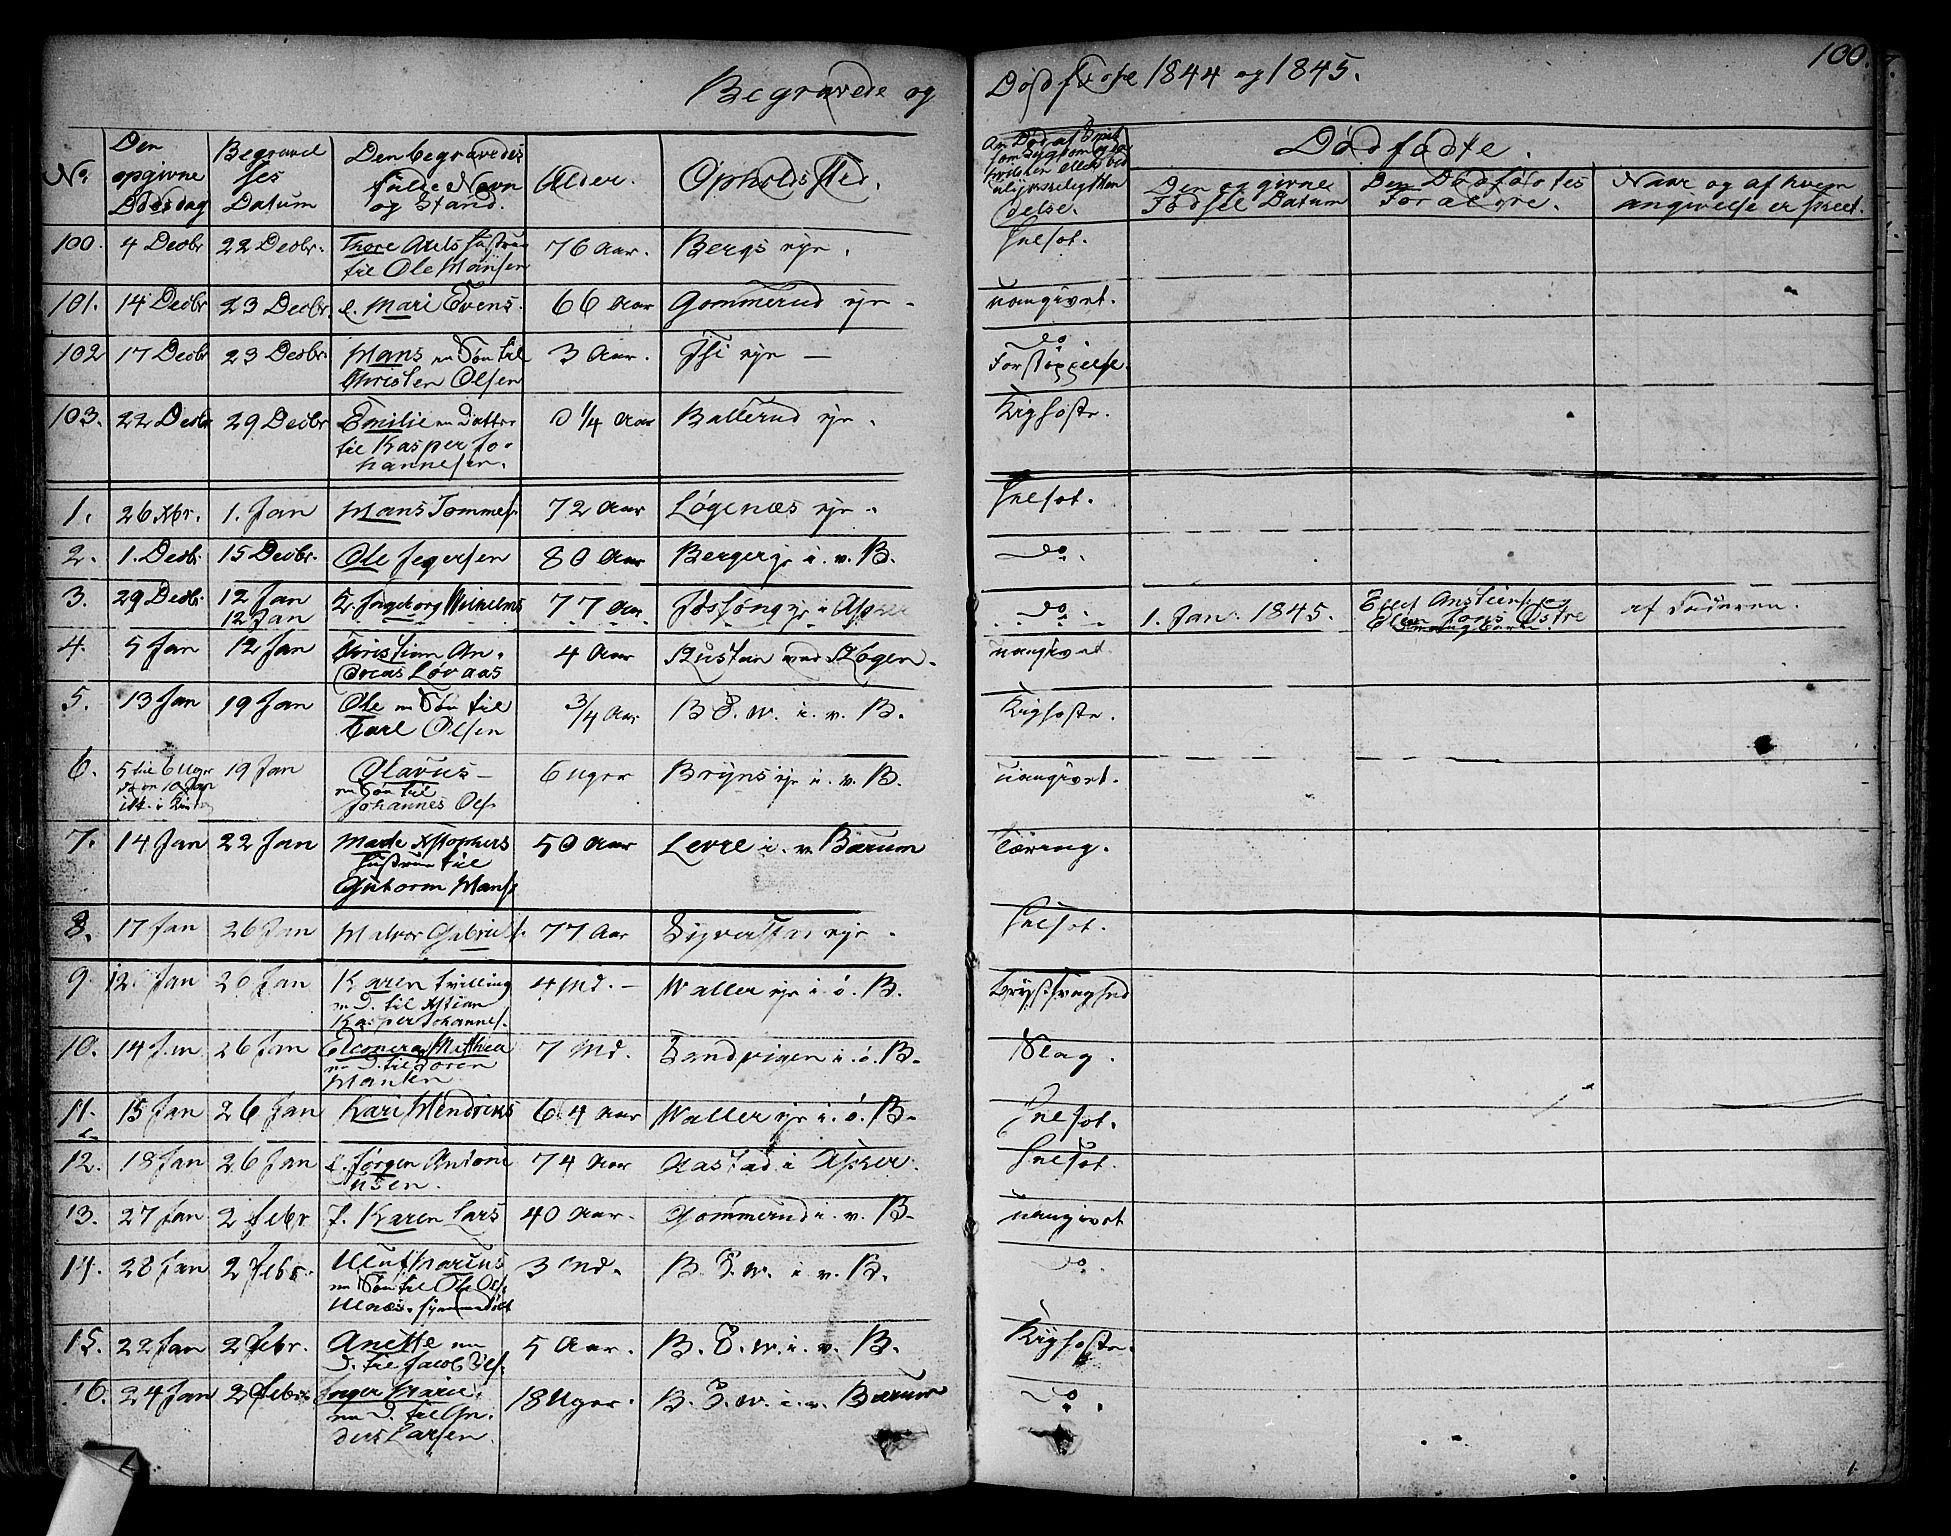 Begravede og Dødfødte 1844 og 1845. 100.
No. Den opgivne Dødsdag Begravelses Datum Den begravedes fulde Navn og Stand. Alder. Opholds Sted. Dødfødte.
Den opgivne Fødsels Datum Den Dødfødtes Forældre. Naar og af hvem angivelse er skeet.
100. 4 Decbr 22 Decbr. Thore Axels Hustrue 76 Aar. Bergs eje. Helsot.
til Ole Hansen
101. 14 Decbr 23 Decbr. e. Mari Evens. 66 Aar Gommerud eje - uangivet.
102 17 Decbr 23 Decbr. Hans en Søn til 3 Aar. eje — do
Christen Olsen Forstoppelse.
103. 22 Decbr 29 Decbr Emilie en Datter 0 1/4 Aar Ballerud eje. Kighoste.
til Kasper Jo-
hannesen.
1. 26 Xbr. 1. Jan Hans Tommes. 72 Aar Løgenæs eje. Helsot.
2. 1. Decbr 15 Decbr. Ole Segersen 80 Aar Berger eje i. v. B. do.
3. 29 Decbr. 12 Jan Ingeborg Wilhelms 77 Aar i Asker do. 1. Jan. 1845. Elen Jons Østre af Faderen.
12 Jan
4. 5 Jan 12 Jan Christian An- 4 Aar ved Skogen. uangivet.
dreas Løvaas
5. 13 Jan 19 Jan Ole en Søn til 3/4 Aar B. S. W. i. v. B. Kighoste.
Carl Olsen
6. 5 til 6 Uger 19 Jan Olavus - 6 Uger Bryns eje i. v. B. uangivet.
en Søn til
Johannes Ols.
7. 14 Jan 22 Jan Marte Xstophers 50 Aar Levre i. v. Bærum Tæring.
Hustrue til
Guttorm Hans.
8. 17 Jan 26 Jan Halvor Gabriels. 77 Aar eje. Helsot.
9. 12. Jan 26 Jan Karen tvilling 4 Md. - Haller eje i. ø. B. Brystsvaghed
en D. til Xstian
Kasper Johannes.
10. 14 Jan 26 Jan Eleonora Mathea 7 Md. Sandvigen i. ø. B. Slag.
en D. til Søren
Hansen.
11. 15 Jan 26 Jan Kari Hendriks 64 Aar Haller eje i. ø. B. Helsot.
12. 18 Jan 26 Jan e. Jørgen Antoni 74 Aar Aastad i Asker. Helsot.
usen.
13. 27 Jan 2 Febr f. Karen Lars 40 Aar. Gommerud i. v. B. uangivet
14. 28 Jan 2 Febr. Marius 3 Md. B. S. W. i. v. B. do.
en Søn til Ole Ols.
15. 22 Jan 2 Febr. Anette en 5 Aar. B. S. W. i. v. B. Kighoste.
D. til Jacob Ols.
16. 24 Jan 2 Febr. Inger Marie. 18 Uger. B. S. W. i. v. Bærum do.
en D. til An-
ders Larsen.